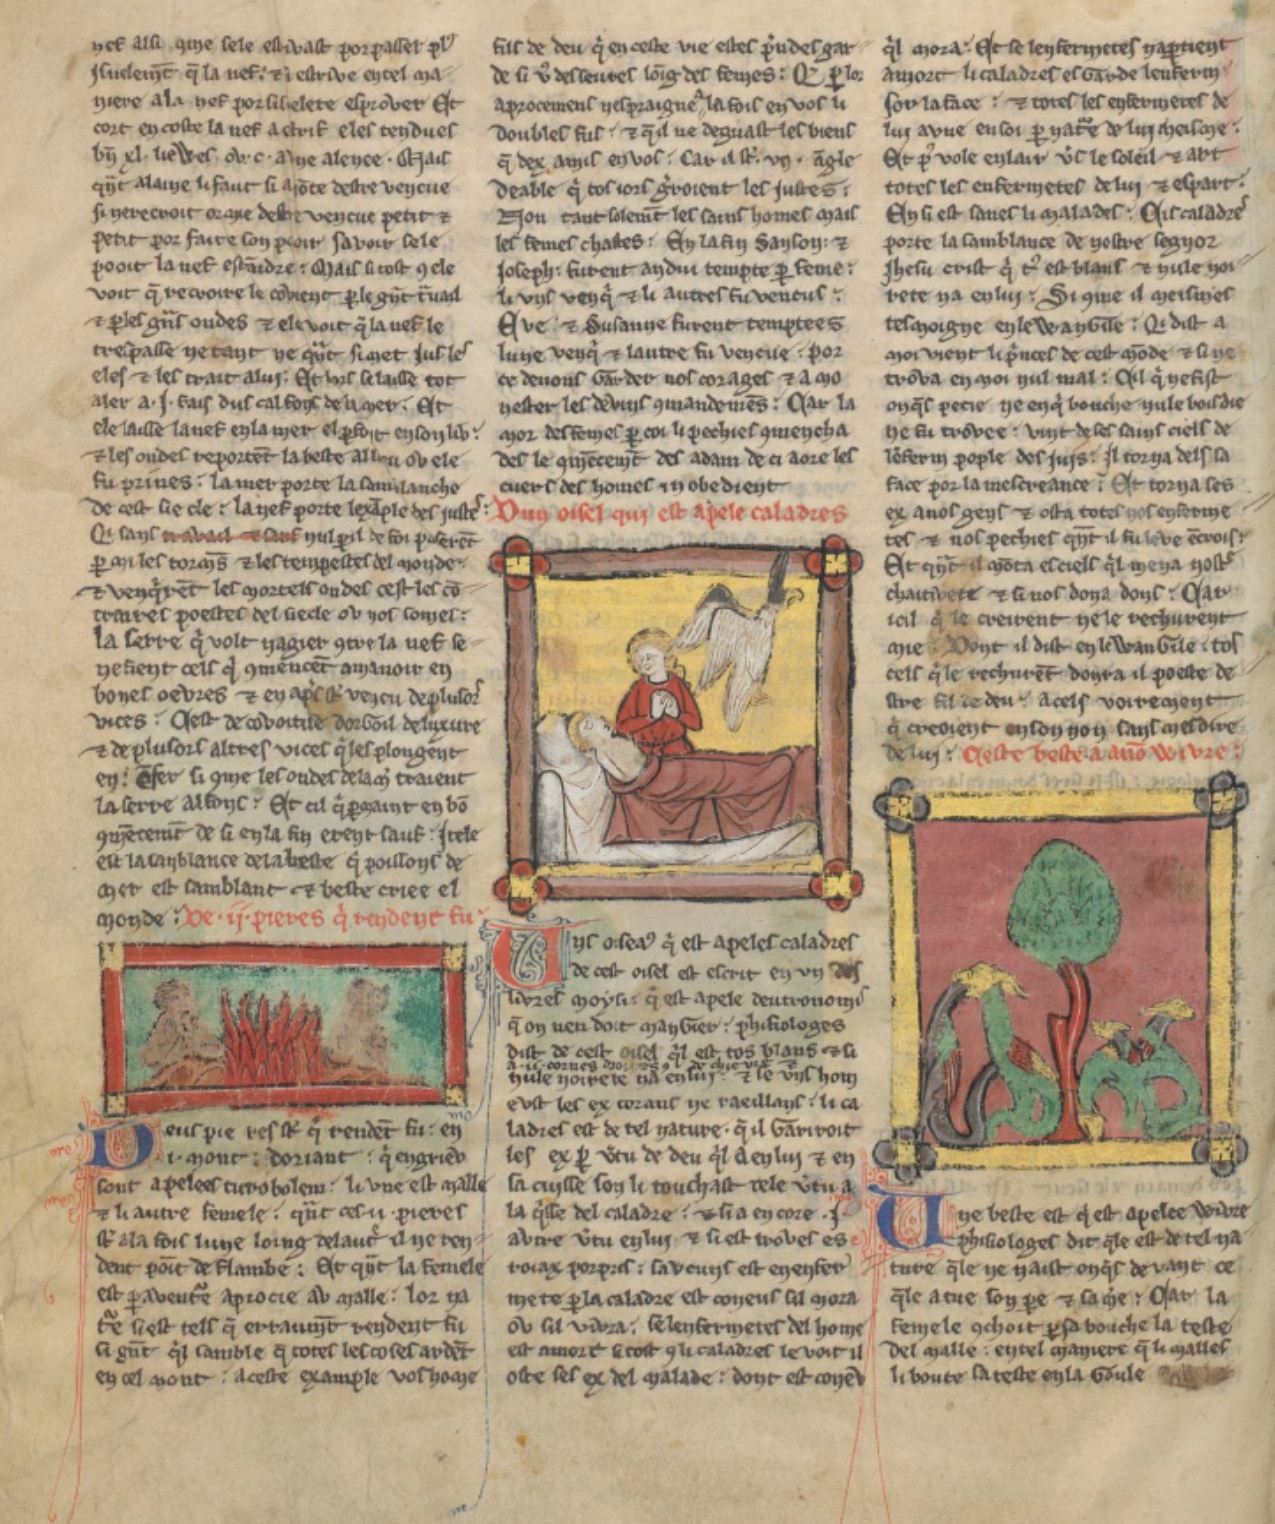 nef alsi qme sele estivast por passer pl9
isnelemt q̃ la nef: ⁊ i estrive en tel ma
niere a la nef por sisnelete esprover Et
cort en coste la nef a estrif eles tendues
bn̄ xl. liewes ov .c. a une alence. Mais
qñt alaine li faut si a hõte destre vencue
si ne recroit mie destre vencue petit ⁊
petit por faire son pooir savoir sele
pooit la nef estaĩdre: Mais si tost 9 ele
voit q̃ recroire le cõvient p le gñt travail
⁊ p les gñs ondes ⁊ ele voit q̃ la nef le
trespasse ne tant ne qñt si met jus les
eles ⁊ les trait a lui. Et lors se laisse tot
aler a .i. fais duscal fons de la mer. Et
ele laisse la nef en la mer
⁊ les ondes reportẽt la beste ov ele
fu prines: la mer porte la samblanche
de cest siecle: la nef porte lexãple des justes:
Qi sans nul pil de foi paserẽt
p mi les torms̃ ⁊ les tempestes del monde:
⁊ venqirẽt les mortels ondes cest les cõ
traires poestes del siecle ov nos somes:
La serre q̃ volt nagier 9tre la nef se
nefient cels q̃ 9mencẽt a manoir en
bones oevres ⁊ en aps̃ st̃ vencu de plusors
vices: Cest de covoitise dorgoil de luxure
⁊ de plusors altres vices q̃ les plongent
en ẽfer si qme les ondes de la m̃ traient
la serre al fons: Et cil q̃ pmaint en bõ
qmẽcemt de si en la fin erent sauf: Itele
est la sanblance de la beste q̃ poissons de
mer est samblant ⁊ beste criee el
monde: De .ii. pieres q̃ rendent fu:
Deus pieres st̃ q̃ rendẽt fu: en
.i. mont: doriant: q̃ en griev
sont apelees turobolem: li une est malle
⁊ li autre femele: qñt ces .ii. pieres
st̃ a la fois lune loing de lautre il ne ren
dent poĩt de flambe: Et qñt la femele
est p aventr̃e aprocie av malle: lor na
tr̃e si est tels q̃ erraumt rendent fu
si gñt ql samble q̃ totes les coses ardẽt
en cel mont: a ceste example vos home
fils de deu q̃ en ceste vie estes pudes gar
de si vos desevres loig des femes: Q p lor
aprocement nespraigne la fois en vos li
doubles fus: ⁊ q̃ il ne deguast les biens
q̃ dex a mis en vos: Car il st̃ .vn. angle
deable q̃ tos iors groient les justes:
Non tant solemt les sains homes mais
les femes chastes: En la fin Sanson: ⁊
joseph: furent andui tempte p feme:
li uns venq̃ ⁊ li autres fu vencus:
Eve: ⁊ Susanne furent temptees
lune venq̃ ⁊ lautre fu vencue: por
ce devons garder nos corages ⁊ a mo
nester les devins 9mandemẽs: Qar la
mor des femes p coi li pechies 9mencha
des le qmẽcemt des adam de ci a ore les
cuers des homes inobedient
Dun oisel qui est apele caladres
Uns oiseax q̃ est apeles caladres
de cest oisel est escrit en un des
livres moysi: q̃ est apele deutronomis
q̃ on nen doit mangier: phisiologes
dist de cest oisel ql est tos blans ⁊ si
a .ii. cornes
nule noirete na en lui: ⁊ se uns hom
eust les ex corans ne raeillans: li ca
ladres est de tel nature. q̃ il gariroit
les ex p vtu de deu ql a en lui ⁊ en
sa cuisse son li touchast tele vtu a
la qisse del caladre: ⁊ si a encore .i.
autre vtu en lui ⁊ si est troves es
roiax porpris: saucuns est enenfer
mete p la caladre est coneus sil mora
ov sil vivra: se lenfermetes del home
est a mort si tost 9 li caladres le voit il
oste ses ex del malade: dont est conev
ql mora: Et se lenfermetes napartient
a mort li caladres esgarde lenferm
sor la face: ⁊ totes les enfermetes de
lui avne en soi p natr̃e de lui meisme:
Et ps̃ vole en lair vs̃ le soleil ⁊ art
totes les enfermetes de lui ⁊ espart:
Ensi est sanes li malades: Cis caladres
porte la samblance de nostre segnor
Jhesu crist q̃ tos est blans ⁊ nule noi
rete na en lui: Si qme il meismes
tesmoigne en lewangile: Qi dist a
moi vient li princes de cest mõde ⁊ si ne
trova en moi nul mal: Cil q̃ ne fist
onqs pecie ne enq̃ bouche nule boisdie
ne fu trovee: vint de ses sains ciels de
lẽferm pople des juis: Il torna dels sa
face por la mescreance: Et torna ses
ex a nos gens ⁊ osta totes nos enferme
tes ⁊ nos pechies qñt il fu leve en crois:
Et qñt il mõta es ciels ql mena nostr̃
chaitivete ⁊ si nos dona dons: Car
icil q̃ le creirent ne le rechurent
mie: Dont il dist en lewangile: tos
cels q̃ le rechurẽt donra il poeste de
stre fil de deu: a cels voirement
q̃ creoient en son non sans mesdire
de lui: Ceste beste a a non wivre:
Une beste est q̃ est apelee wivre
phisiologes dit qle est de tel na
ture qle ne naist onqs devant ce
qle a tue son pe ⁊ sa me: Car la
femele 9choit p sa bouche la teste
Del malle: en tel maniere q̃ li malles
li boute sa teste en la goule